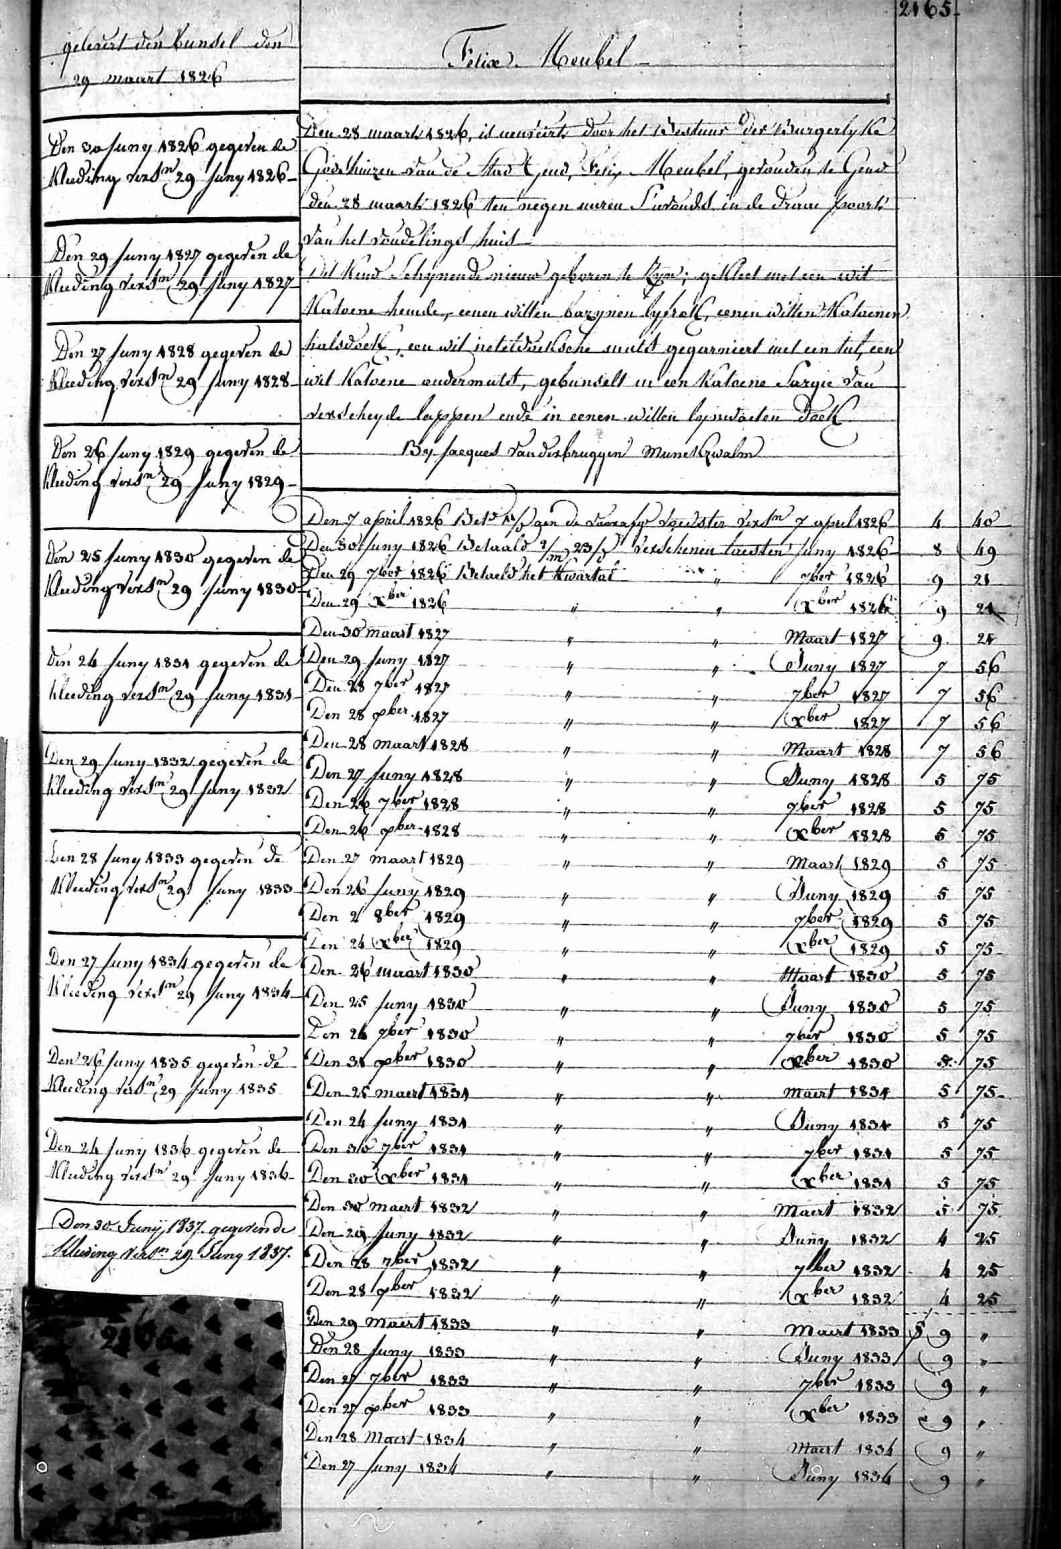 2165.
Felix Meubel
gelevert den bundel den
29 maart 1826
Den 30 Juny 1826 gegeven de
Kleeding versn 29 Juny 1826
Den 29 Juny 1827 gegeven de
Kleeding versn 29 Juny 1827
Den 27 Juny 1828 gegeven de
Kleeding versn 29 Juny 1828
Den 26 Juny 1829 gegeven de
Kleeding versn 29 Juny 1829
Den 25 Juny 1830 gegeven de
Kleeding versn 29 Juny 1830
Den 24 Juny 1831 gegeven de
Kleeding versn 29 Juny 1831
Den 29 Juny 1832 gegeven de
Kleeding versn 29 Juny 1832
Den 28 Juny 1833 gegeven de
Kleeding versn 29 Juny 1833
Den 27 Juny 1834 gegeven de
Kleeding versn 29 Juny 1834
Den 26 Juny 1835 gegeven de
Kleeding versn 29 Juny 1835
Den 24 Juny 1836 gegeven de
Kleeding versn 29 Juny 1836
Den 30 Junij 1837 gegeven de
Kleeding versn 29 Juny 1837.
Den 28 maart 1826, is door het Bestuur der Burgerlyke
Godshuizen van de Stad Gend, Felix Meubel, gevonden te Gend
den 28 maart 1826 ten negen uuren S'avonds in de draae poort
van het vondelings huis
Dit Kind Schynende nieuw geboren te Zyn; gekleet met een wit
Katoene hemde, eenen witten bazynen lyfrok, eenen witten Katoenen
halsdoek, een wit muts gegarniert met een tul, een
wit Katoene ondermutst, gebunselt in een Katoene Sargie van
verscheyde lappen ende in eenen witten lynwaeten Doek
By Jacques Vanderbruggen
Den 7 april 1826 Betd aen de versn 7 april 1826 4 40
Den 30 Juny 1826 Betaald 23/ verschenen Juny 1826 8 49
Den 29 7ber 1826 Betaeld het Kwartal " 7ber 1826 9 21
Den 29 Xber 1826 " " Xber 1826 9 21
Den 30 maart 1827 " " Maart 1827 9 21
Den 29 Juny 1827 " " Juny 1827 7 56
Den 28 7ber 1827 " " 7ber 1827 7 56
Den 28 Xber 1827 " " Xber 1827 7 56
Den 28 maart 1828 " " Maart 1828 7 56
Den 27 Juny 1828 " " Juny 1828 5 75
Den 26 7ber 1828 " " 7ber 1828 5 75
Den 26 Xber 1828 " " Xber 1828 5 75
Den 27 maart 1829 " " Maart 1829 5 75
Den 26 Juny 1829 " " Juny 1829 5 75
Den 2 8ber 1829 " " 7ber 1829 5 75
Den 24 Xber 1829 " " Xber 1829 5 75
Den 26 maart 1830 " " Maart 1830 5 75
Den 25 Juny 1830 " " Juny 1830 5 75
Den 24 7ber 1830 " " 7ber 1830 5 75
Den 31 Xber 1830 " " Xber 1830 5 75
Den 25 maert 1831 " " maert 1831 5 75
Den 24 Juny 1831 " " Juny 1831 5 75
Den 30 7ber 1831 " " 7ber 1831 5 75
Den 30 Xber 1831 " " Xber 1831 5 75
Den 30 maert 1832 " " Maert 1832 5 75
Den 29 Juny 1832 " " Juny 1832 4 25
Den 28 7ber 1832 " " 7ber 1832 4 25
Den 28 Xber 1832 " " Xber 1832 4 25
Den 29 maert 1833 " " Maert 1833 f 9 "
Den 28 Juny 1833 " " Juny 1833 9 "
Den 27 7ber 1833 " " 7ber 1833 9 "
Den 27 Xber 1833 " " Xber 1833 9 "
Den 28 Maert 1834 " " Maert 1834 9 "
Den 27 Juny 1834 " " Juny 1834 9 "